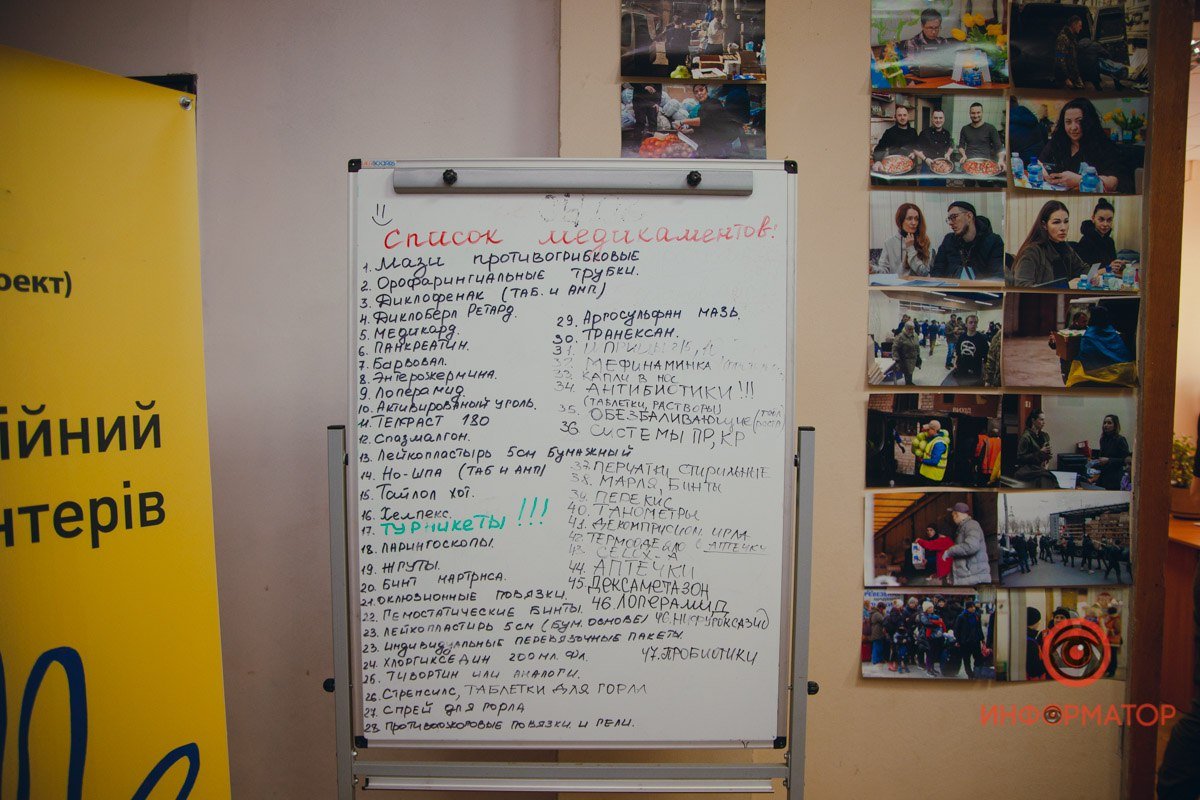 оект)
ійний
нтерів
Список медикаментов!
1. Мази противогрибковые
2. Орофарингиальные трубки.
3. Диклофенак (таб. и амп)
4. Диклоберл Ретард.
5. Медикард.
6. Панкреатин.
7. Барвовал.
8. Энтерожермина.
9. Лоперамид
10. Активированый уголь.
11. Текраст 180
12. Спазмалгон.
13. Лейкопластырь 5см бумажный
14. Но-шпа (таб и амп)
15. Тайлол хот.
16. Хелпекс.
17. Турникеты!!!
18. Ларингоскопы.
19. Жгуты.
20. Бинт мартриса.
21. Оклюзионные повязки.
22. Гемостатические бинты.
23. Лейкопластырь 5см (бум. основе)
23. Индивидуальные перевязочные пакеты.
24. Хлоргикседин 200мл. фл.
25. Тивортин или аналоги.
26. Стрепсилс, таблетки для горла
27. Спрей для горла
28. Противоожоговые повязки и гели.
29. Аргосульфан мазь.
30. Транексан.
31.
32. Мефинаминка
33. Капли в нос
34. Антибиотики!!!
(таблетки, растворы)
35. Обезбаливающие
36. Системы ПР, КР
37. Перчатки стирильные
38. Марля, бинты
39. Перекис
40. Танометры
41. Декомприсион игла
42. Термоодеяло с аптечку
43. Celox-A
44. Аптечки
45. Дексаметазон
46. Лоперамид
46. Нифуроксазид
47. Пробиотики
ИНФОРМАТОР